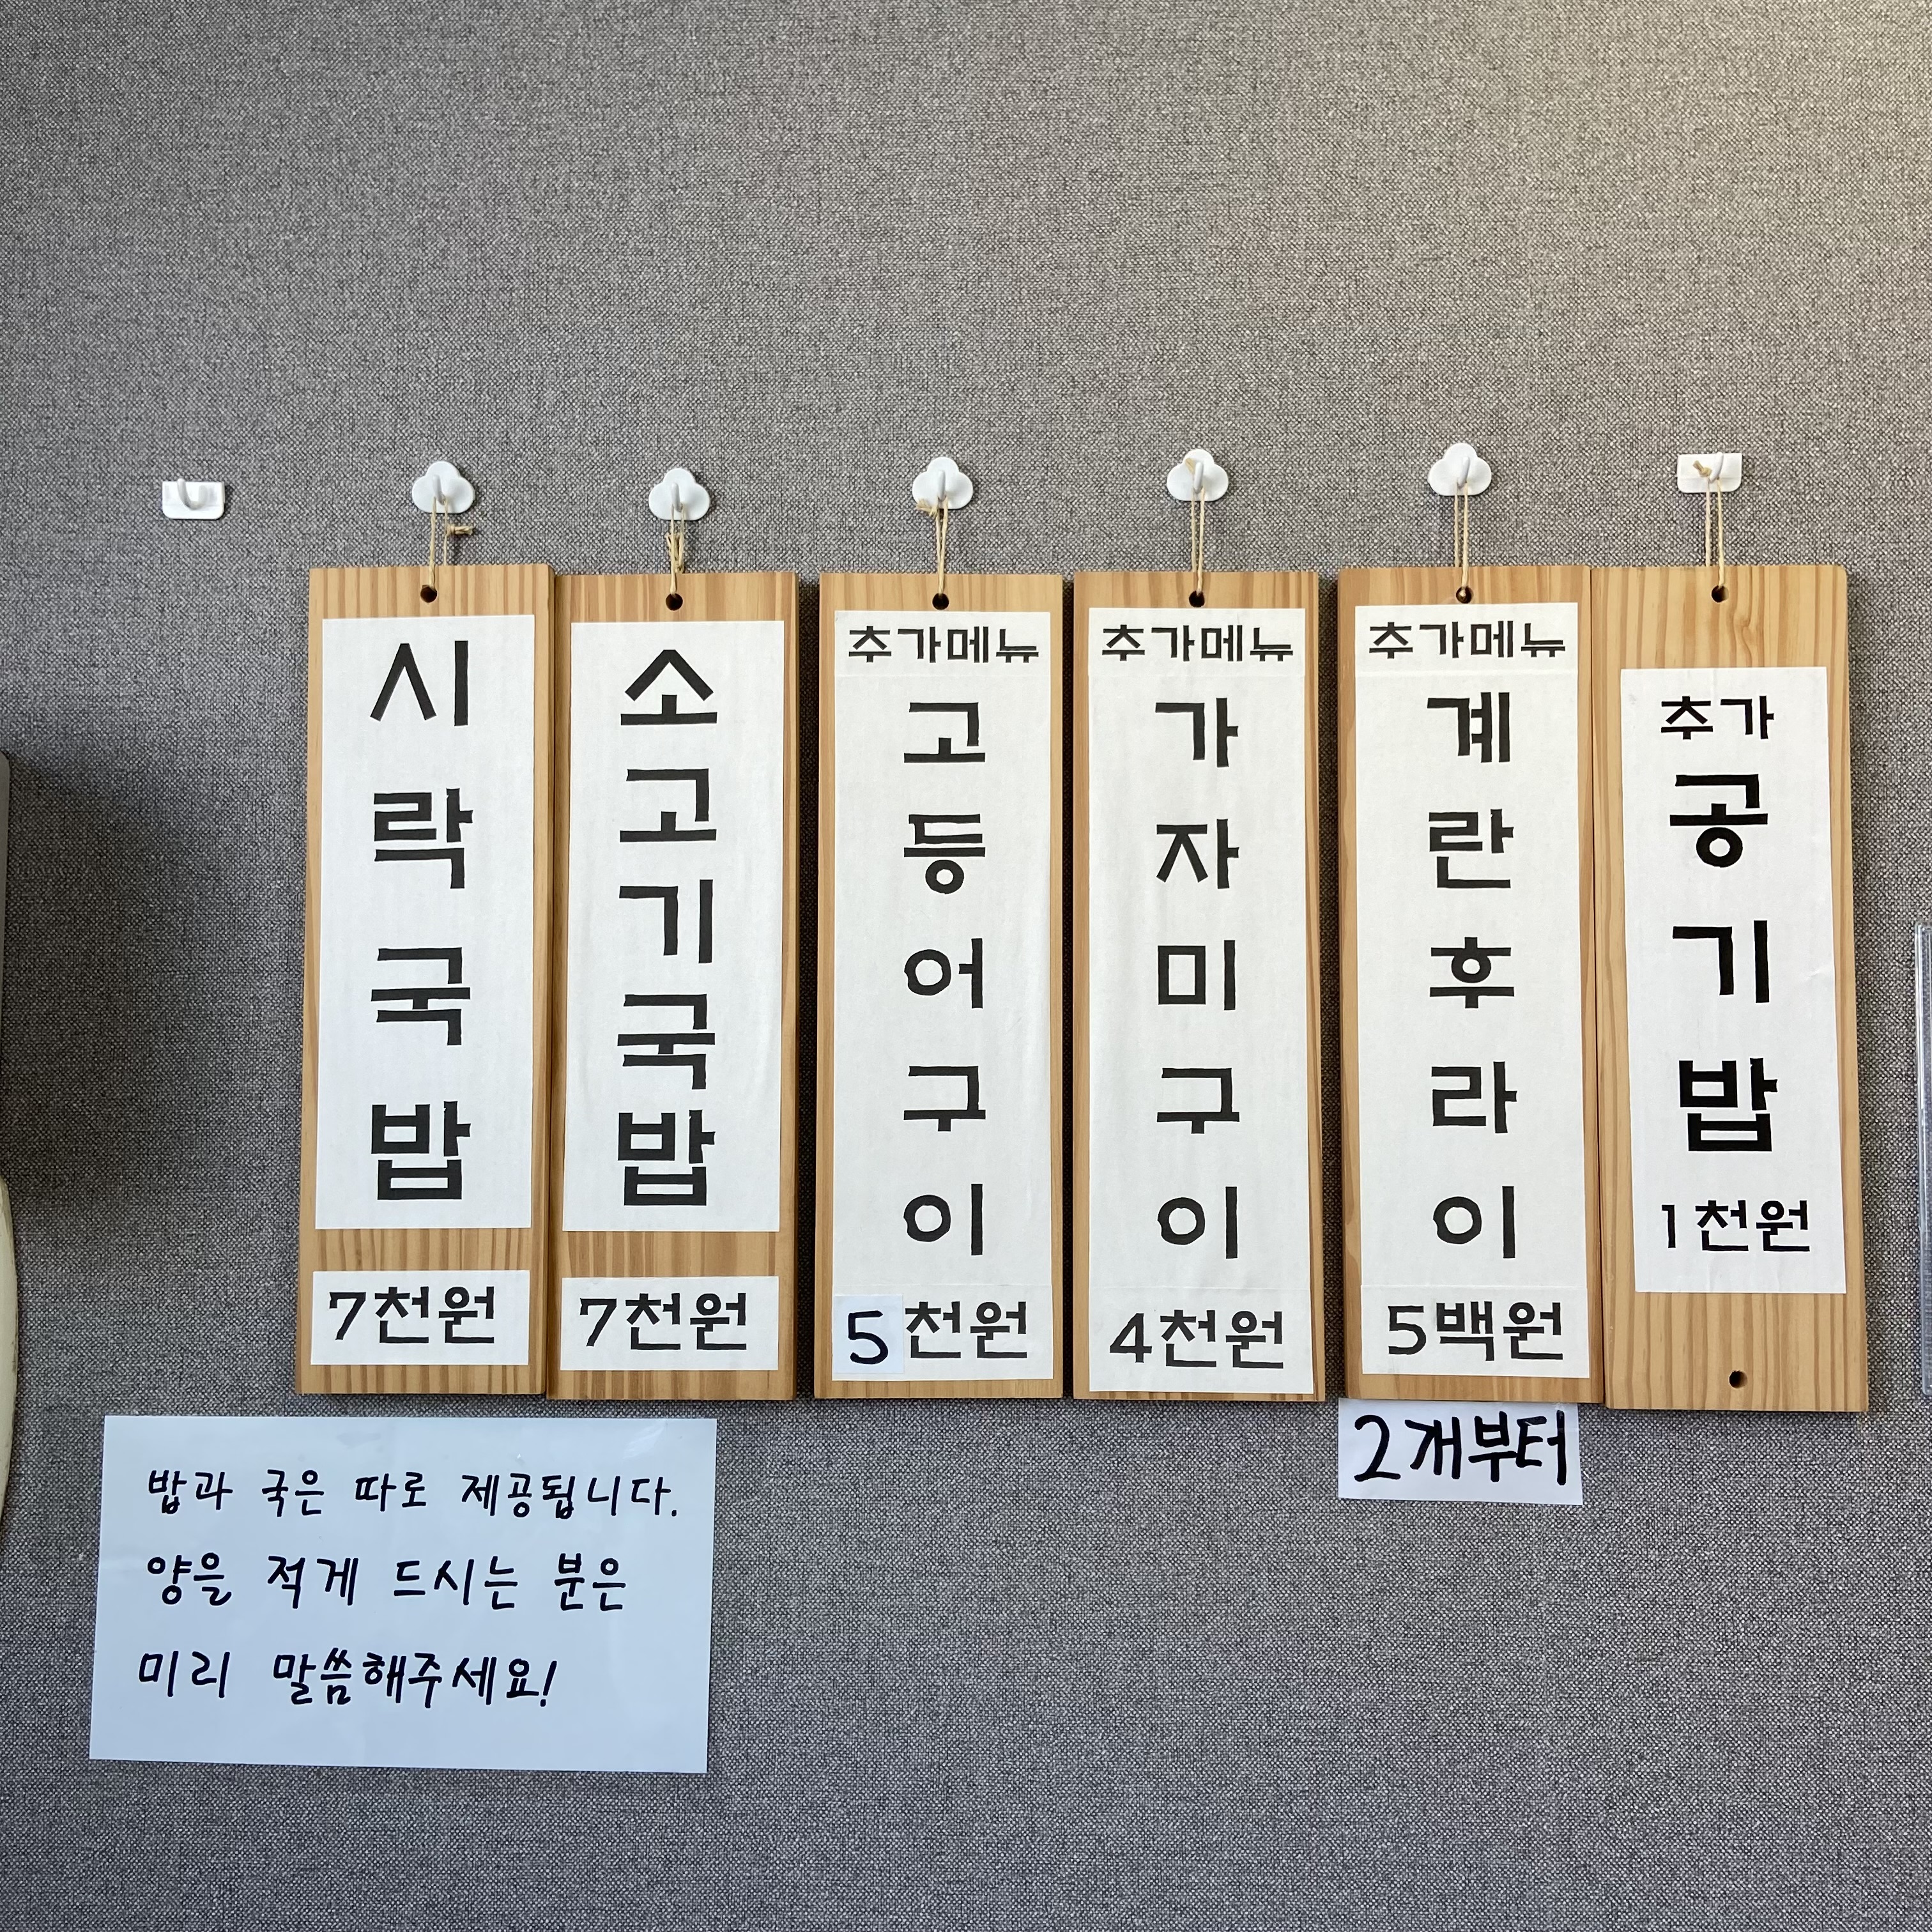 시락국밥
7천원
소고기국밥
7천원
추가메뉴
고등어구이
5천원
추가메뉴
가자미구이
4천원
추가메뉴
계란후라이
5백원
2개부터
추가
공기밥
1천원
밥과 국은 따로 제공됩니다.
양을 적게 드시는 분은
미리 말씀해주세요!